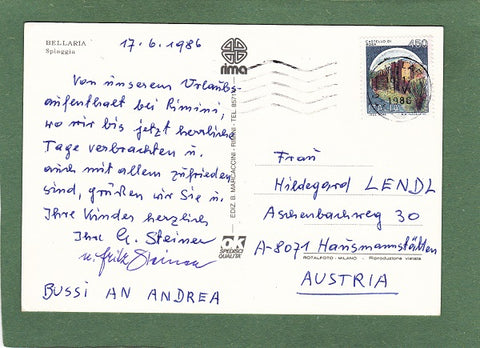 BELLARIA
Spiaggia
17.6.1986
rima
Von unserem Urlaubs-
aufenthalt bei Rimini,
wo wir bis jetzt herrliche
Tage verbrachten u.
auch mit allem zufrieden
sind, grüßen wir Sie u.
Ihre Kinder herzlich
Ihre G. Steiner
u. Fritz Steiner
BUSSI AN ANDREA
EDIZ. B. MARCACCINI - RIMINI - TEL.
OK
SPEDISCI
QUALITA'
450
1986
Frau
Hildegard LENDL
Aschenbachweg 30
A-8071 Hausmannstätten
ROTALFOTO - MILANO - Riproduzione vietata
AUSTRIA